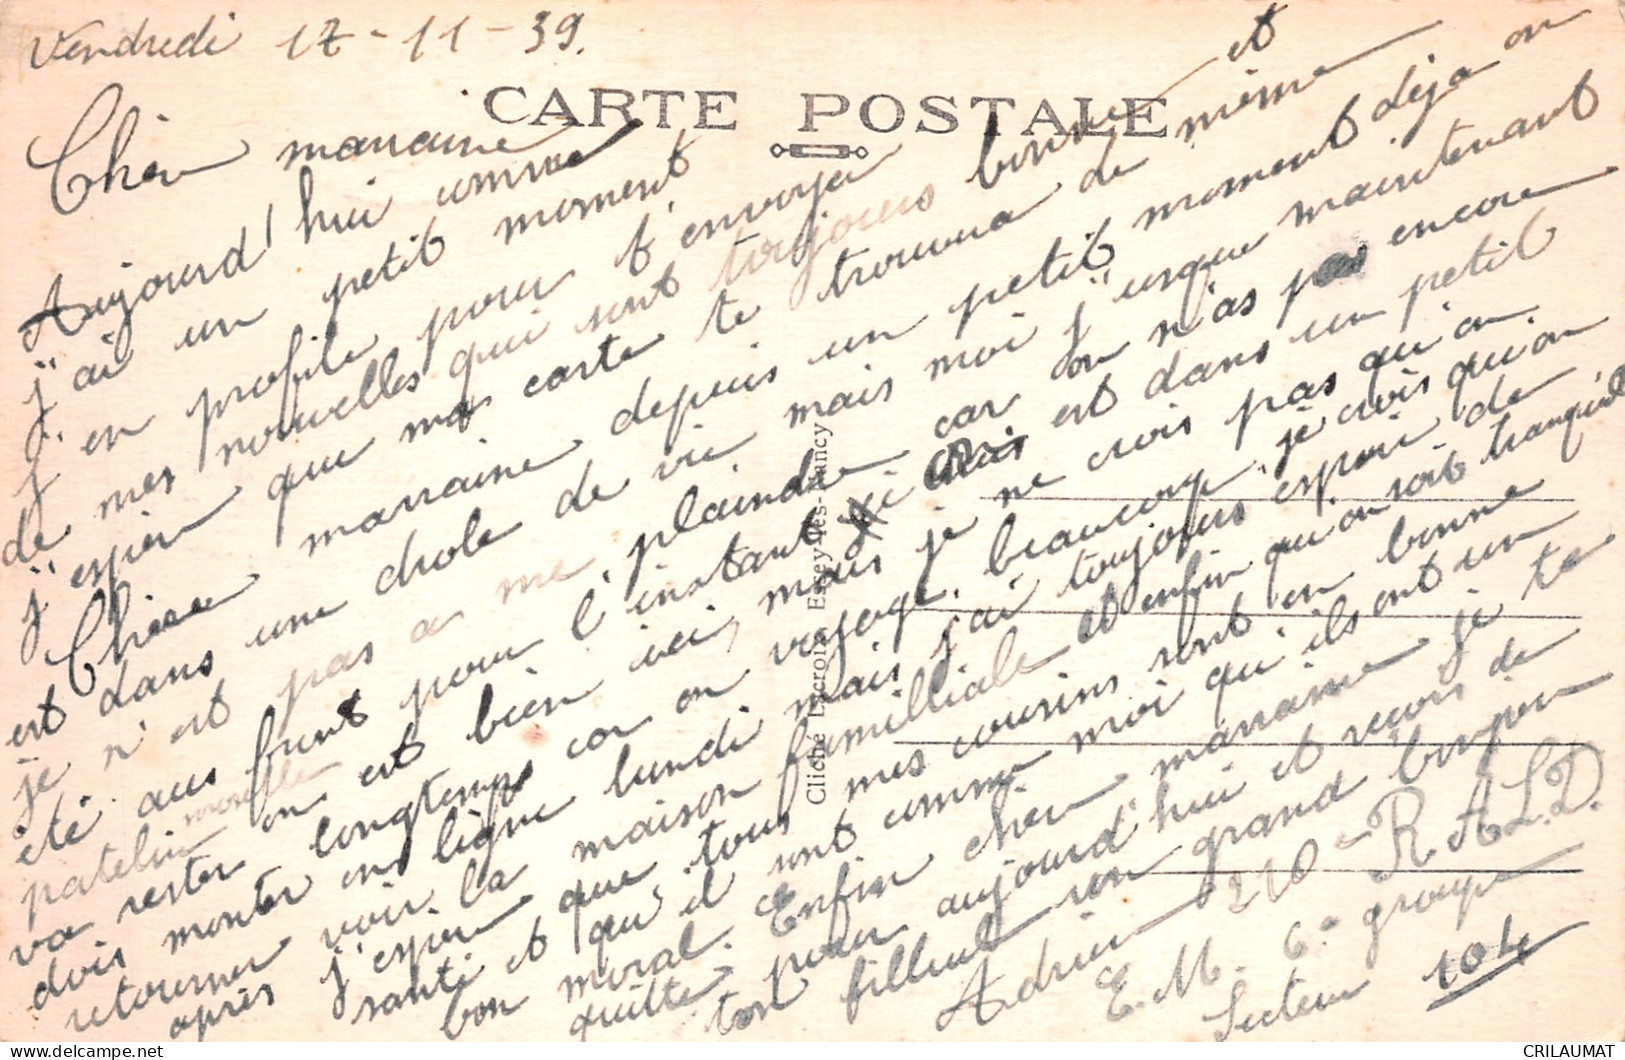 Vendredi 17-11-39.
CARTE POSTALE
Chère marraine
Aujourd'hui comme
j'ai un petit moment
j'en profite pour t'envoyer
de mes nouvelles qui sont toujours bonne et
j'espère que ma carte te trouvera de même
Chère marraine depuis un petit moment déja on
est dans une drole de vie mais moi j'usque maintenant
je n'est pas a me plaindre car on n'as pas encore
été aus front pour l'instant ici on est dans un petit
patelin
on est bien ici, mais je ne crois pas qu'on
va rester longtemps car on voyage beaucoup, je crois qu'on
dois monter en ligne lundi mais j'ai toujours espoir de
retourner voir la maison familliale et enfin qu'on soit tranquille
après j'espère que tous mes cousins sont en bonne
santé et qu'il sont comme moi qu'ils ont un
bon moral. Enfin chère marraine je te
quitte pour aujourd'hui et reçois de
ton filleul son grand
Adrien 210e R.A.L.D.
E.M. 6e groupe
Secteur 104
Cliché Lacroix, Essey-lès-Nancy
CRILAUMAT